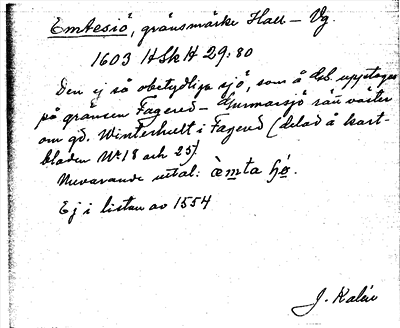 Emtesiö, gränsmärke Hall – Vg.
1603 HSkH 29:80
Den ej så obetydliga sjö, som å kbl. upptages
på gränsen Fagered – Gunnarsjö rätt väster
om gd. Winterhult i Fagered (delad å kart-
bladen Nr 18 och 25)
Nuvarande uttal: èmta ʃø.
Ej i listan av 1554
J. Kalén